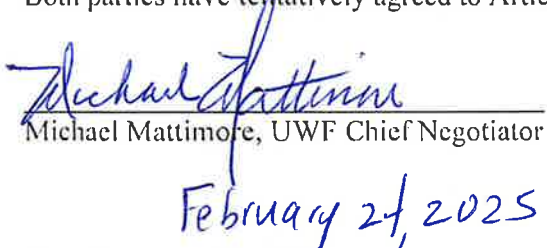 Both parties have tentatively agreed to Artic
Michael Mattimore
Michael Mattimore, UWF Chief Negotiator
February 21, 2025